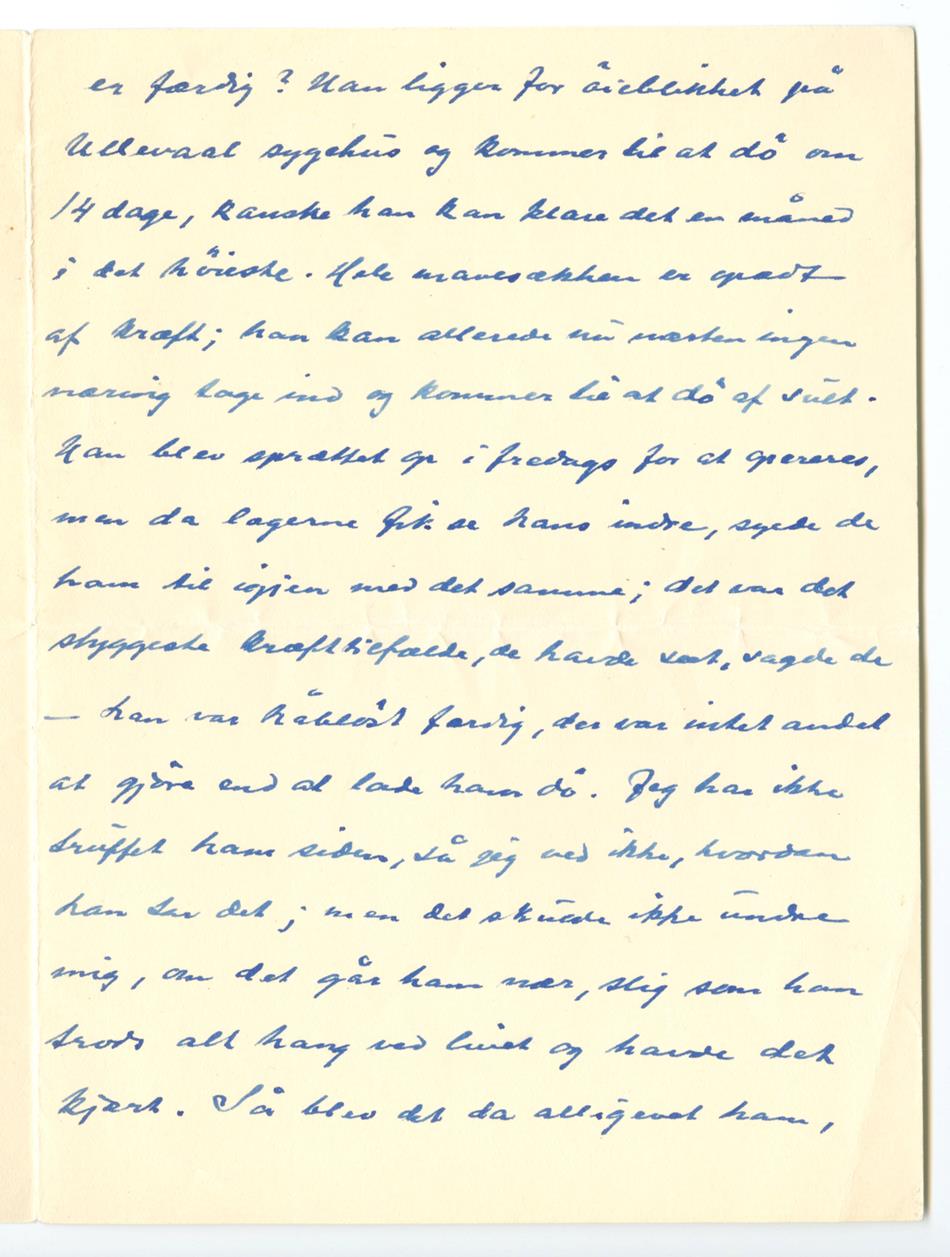 er færdig? Han ligger for öieblikket på
Ullevaal sygehus og kommer til at dö om
14 dage, kanske han kan klare det en måned
i det höieste. Hele mavesækken er opædt
af kræft; han kan allerede nu næsten ingen
næring tage ind og kommer til at dö af sult.
Han blev sprættet op i fredags for at opereres,
men da lægerne fik se hans indre, syede de
ham til igjen med det samme; det var det
styggeste kræfttilfælde, de havde set, sagde de
— han var håblöst færdig, der var intet andet
at gjöre end at lade ham dö. Jeg har ikke
truffet ham siden, så jeg ved ikke, hvordan
han tar det; men det skulde ikke undre
mig, om det går ham nær, slig som han
trods alt hang ved livet og havde det
kjært. Så blev det da alligevel ham,